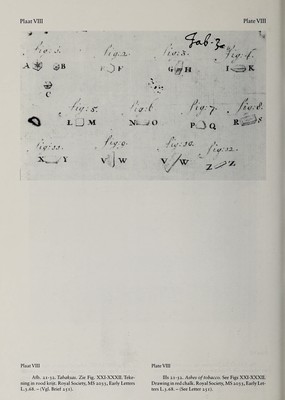 Plaat VIII Plate VIII
Tab. 30
fig: 1. fig: 2. fig: 3. fig: 4.
A B F G H I K
C
fig: 5. fig: 6. fig: 7. fig: 8.
L M N O P Q R S
fig: 11. fig: 9. fig: 10. fig: 12.
X Y V W V W Z Z
Plaat VIII Plate VIII
Afb. 21-32. Tabaksas. Zie Fig. XXI-XXXII. Teke-
ning in rood krijt. Royal Society, MS 2053, Early Letters
L.3.68. – (Vgl. Brief 251)
Ills 21-32. Ashes of tobacco. See Figs XXI-XXXII.
Drawing in red chalk. Royal Society, MS 2053, Early Let-
ters L.3.68. – (See Letter 251).